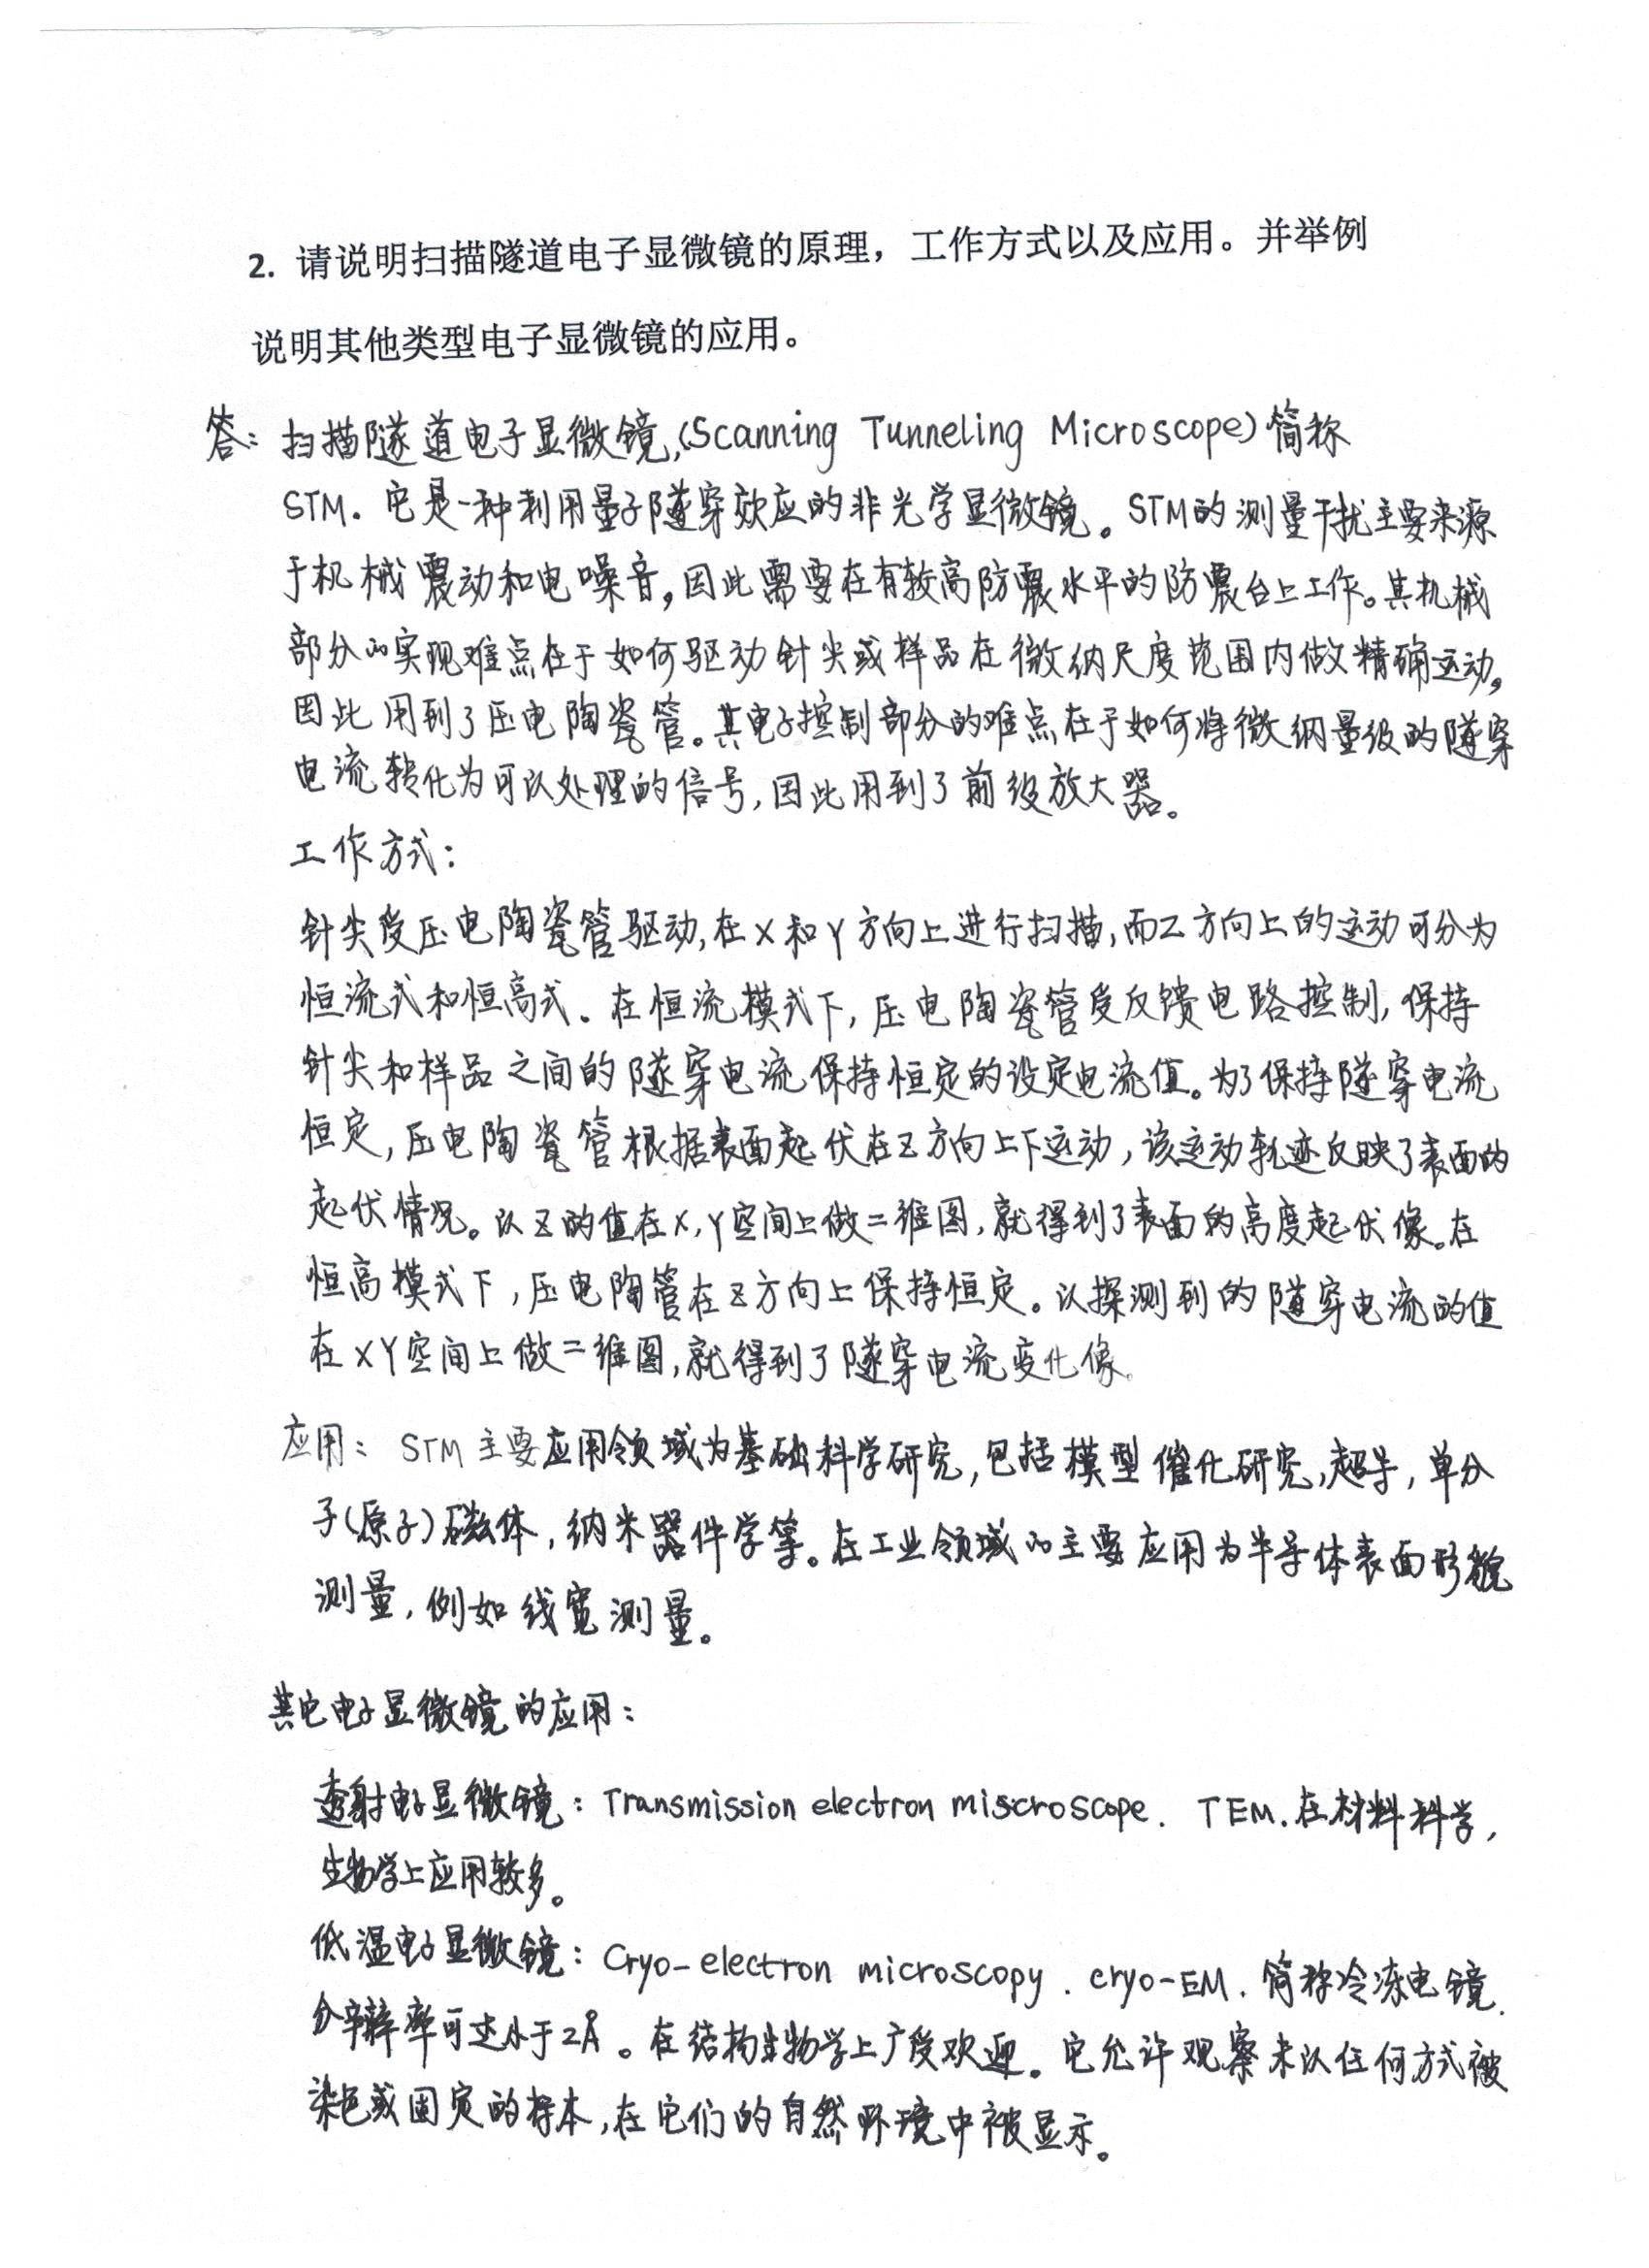 2. 请说明扫描隧道电子显微镜的原理，工作方式以及应用。并举例
说明其他类型电子显微镜的应用。
答：扫描隧道电子显微镜,(Scanning Tunneling Microscope)简称
STM. 它是一种利用量子隧穿效应的非光学显微镜。STM的测量干扰主要来源
于机械震动和电噪音，因此需要在有较高防震水平的防震台上工作。其机械
部分的实现难点在于如何驱动针尖或样品在微纳尺度范围内做精确运动，
因此用到了压电陶瓷管。其电子控制部分的难点在于如何将微纳量级的隧穿
电流转化为可以处理的信号，因此用到了前级放大器。
工作方式：
针尖受压电陶瓷管驱动，在X和Y方向上进行扫描，而Z方向上的运动可分为
恒流式和恒高式。在恒流模式下，压电陶瓷管受反馈电路控制，保持
针尖和样品之间的隧穿电流保持恒定的设定电流值。为了保持隧穿电流
恒定，压电陶瓷管根据表面起伏在Z方向上下运动，该运动轨迹反映了表面的
起伏情况。以Z的值在X,Y空间上做二维图，就得到了表面的高度起伏像。在
恒高模式下，压电陶管在Z方向上保持恒定。以探测到的隧穿电流的值
在XY空间上做二维图，就得到了隧穿电流变化像。
应用：STM主要应用领域为基础科学研究，包括模型催化研究，超导，单分
子(原子)磁体，纳米器件学等。在工业领域的主要应用为半导体表面形貌
测量，例如线宽测量。
其它电子显微镜的应用：
透射电子显微镜：Transmission electron miscroscope. TEM.在材料科学，
生物学上应用较多。
低温电子显微镜：Cryo-electron microscopy. cryo-EM. 简称冷冻电镜.
分辨率可达小于2Å。在结构生物学上广受欢迎。它允许观察未以任何方式被
染色或固定的标本，在它们的自然环境中被显示。